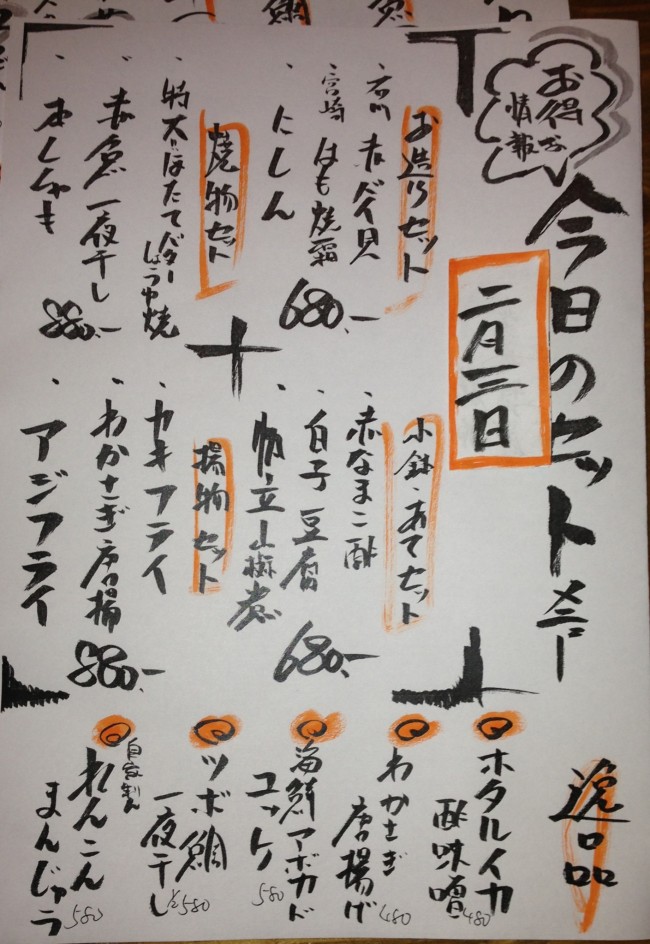 お得な
情報
今日のセットメニュー
二月三日
お造りセット
・石川 赤バイ貝
・宮崎 はも焼霜
・にしん
680.-
焼物セット
・特大ほたてバター
しょうゆ焼
・赤魚一夜干し
880.-
小鉢・あてセット
・赤なまこ酢
・白子豆腐
・帆立山椒煮
680.-
揚物セット
・カキフライ
・わかさぎ唐揚
・アジフライ
880.-
逸品
ホタルイカ
酢味噌 480
わかさぎ
唐揚げ 480
海鮮アボカド
ユッケ 580
ツボ鯛
一夜干し 1/2 580
自家製
れんこん
まんじゅう 580